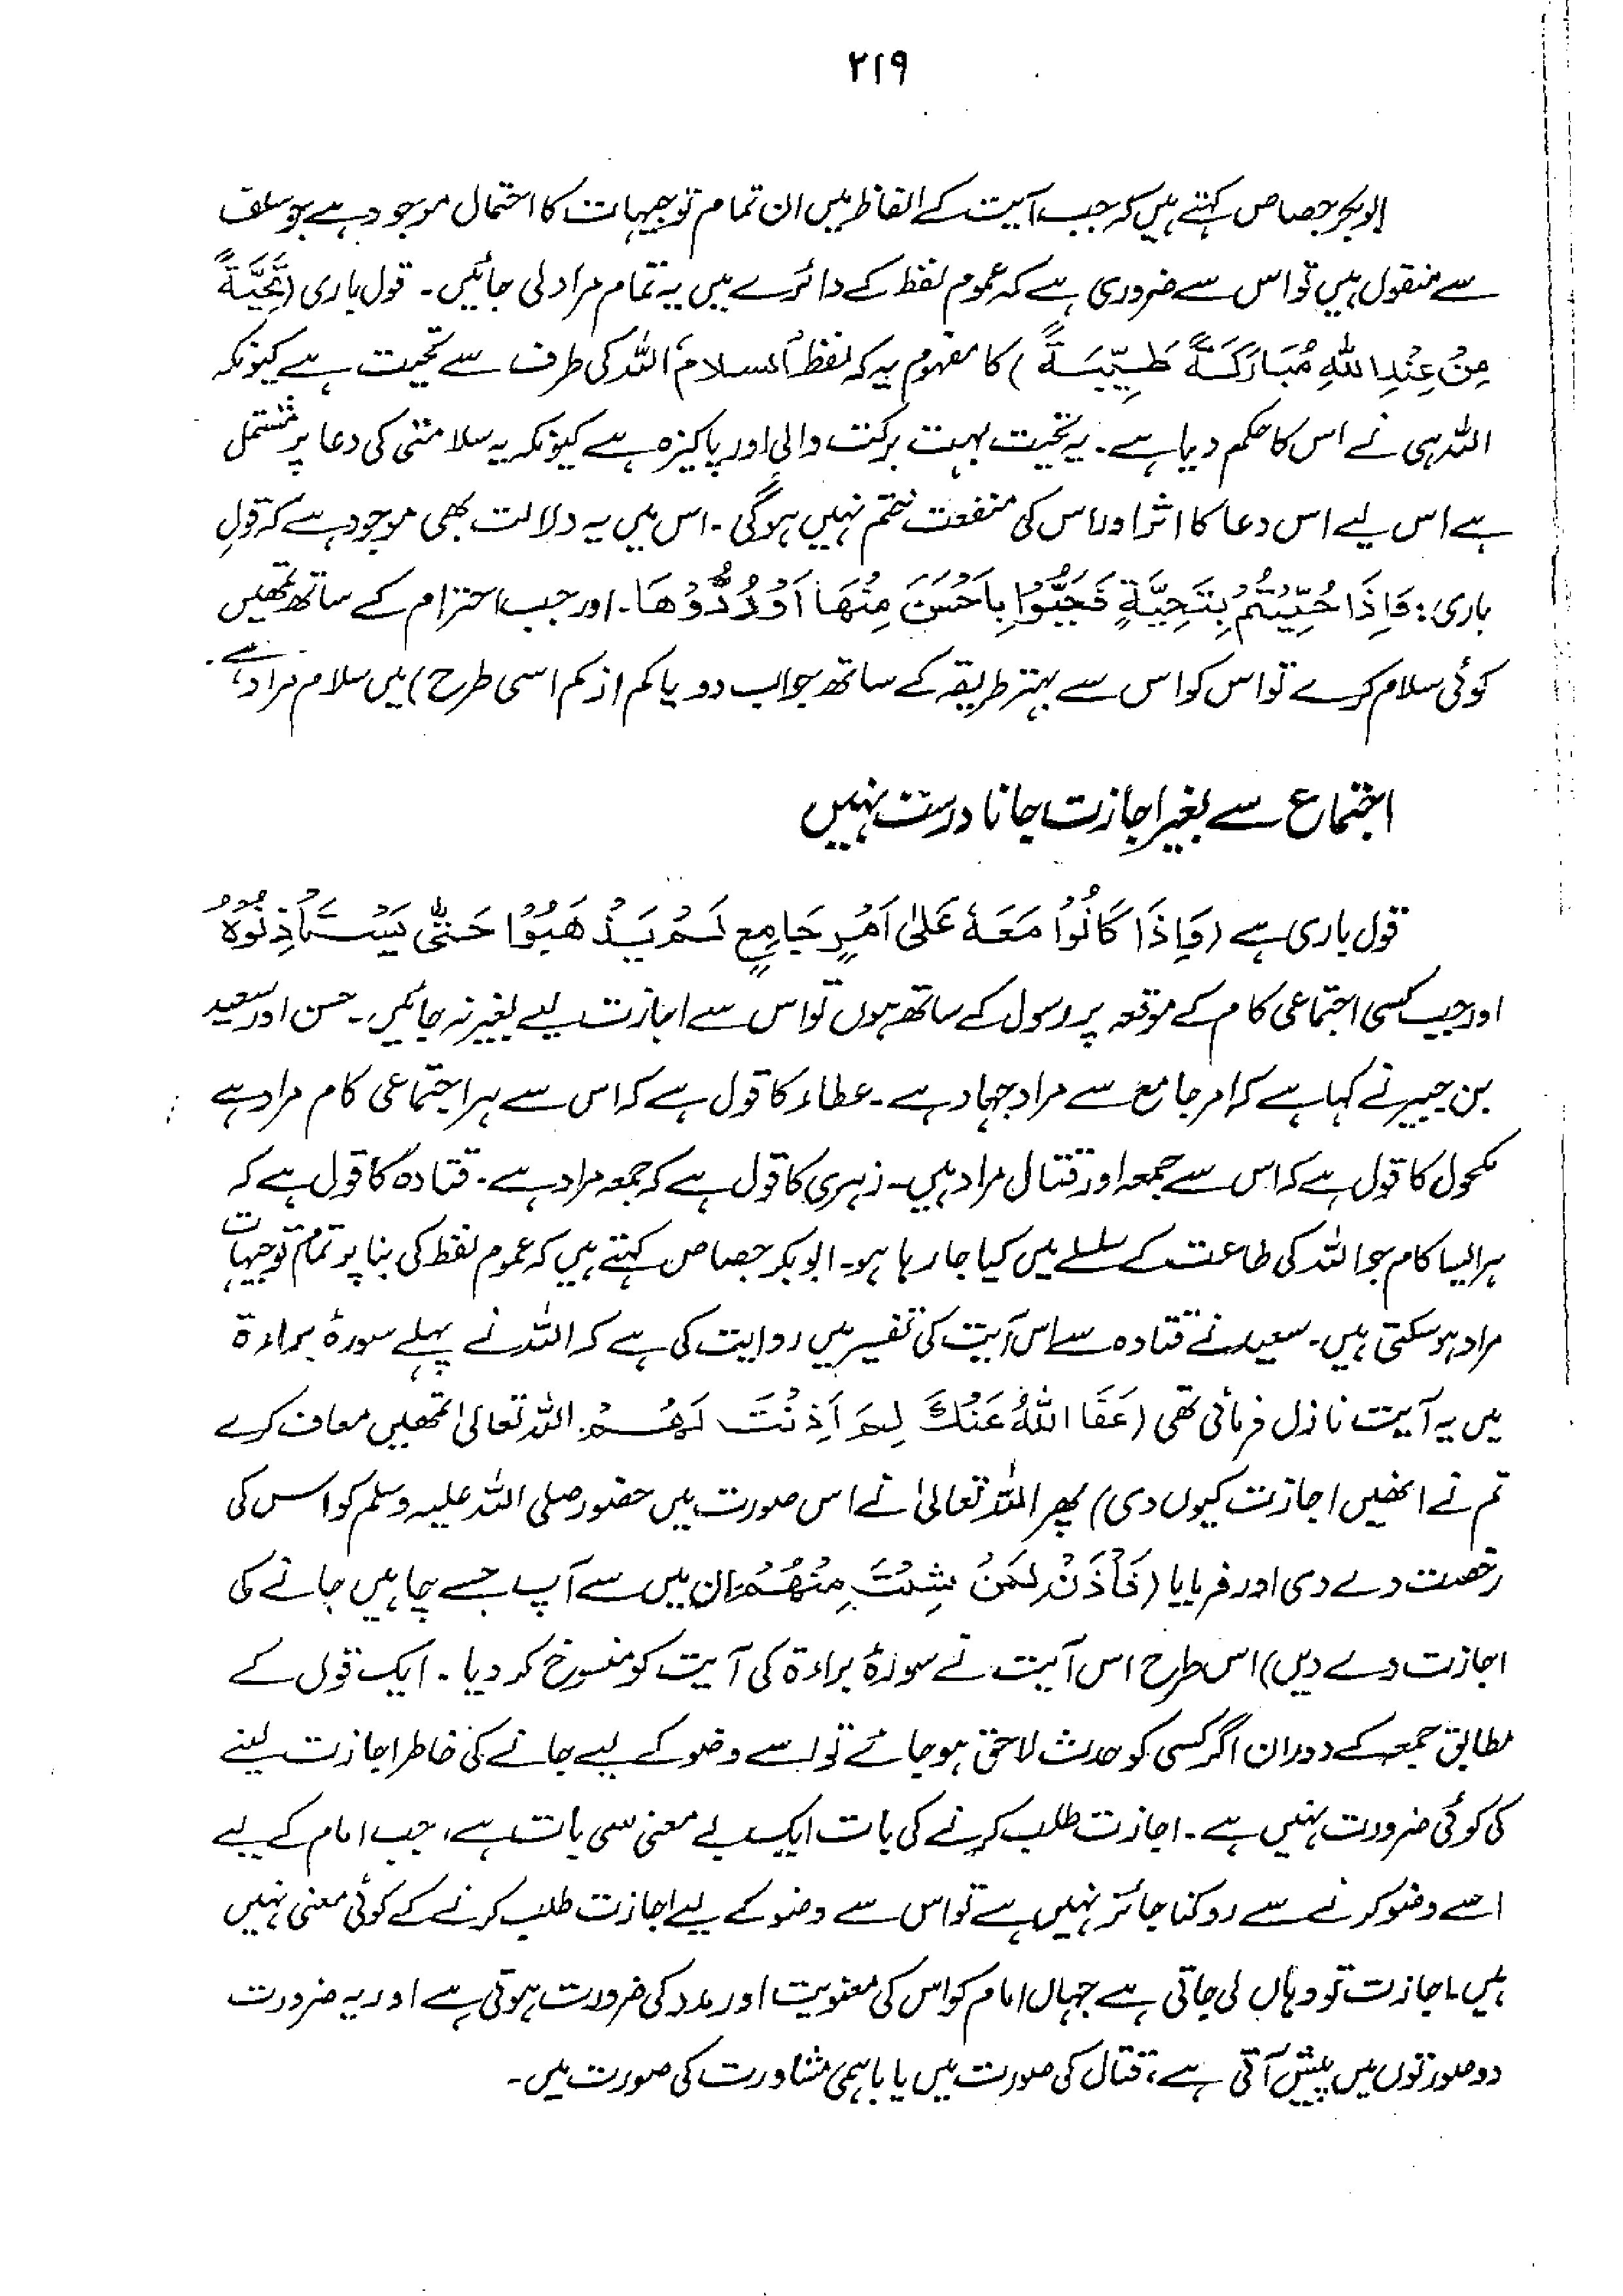 ۲۱۹
ابوبکر جصاص کہتے ہیں کہ جب آیت کے الفاظ میں ان تمام توجیہات کا احتمال موجود ہے جو سلف
سے منقول ہیں تو اس سے ضروری ہے کہ عموم لفظ کے دائرے میں یہ تمام مراد لی جائیں۔ قول باری (تَحِيَّةً
مِنْ عِنْدِ اللّٰهِ مُبَارَكَةً طَيِّبَةً) کا مفہوم یہ کہ لفظ "السلام" اللہ کی طرف سے تحیت ہے کیونکہ
اللہ ہی نے اس کا حکم دیا ہے۔ یہ تحیت بہت برکت والی اور پاکیزہ ہے کیونکہ یہ سلامتی کی دعا پر مشتمل
ہے اس لیے اس دعا کا اثر اور اس کی منفعت ختم نہیں ہوگی۔ اس میں یہ دلالت بھی موجود ہے کہ قولِ
باری: فَإِذَا حُيِّيْتُمْ بِتَحِيَّةٍ فَحَيُّوْا بِأَحْسَنَ مِنْهَا اَوْ رُدُّوْهَا۔ اور جب احترام کے ساتھ تمھیں
کوئی سلام کرے تو اس کو اس سے بہتر طریقہ کے ساتھ جواب دو یا کم از کم اسی طرح) میں سلام مراد ہے۔
اجتماع سے بغیر اجازت جانا درست نہیں
قول باری ہے (وَإِذَا كَانُوْا مَعَهٗ عَلٰى اَمْرٍ جَامِعٍ لَمْ يَذْهَبُوْا حَتّٰى يَسْتَأْذِنُوْهُ
اور جب کسی اجتماعی کام کے موقعہ پر رسول کے ساتھ ہوں تو اس سے اجازت لیے بغیر نہ جائیں۔ حسن اور سعید
بن جبیر نے کہا ہے کہ امر جامع سے مراد جہاد ہے۔ عطاء کا قول ہے کہ اس سے ہر اجتماعی کام مراد ہے
مکحول کا قول ہے کہ اس سے جمعہ اور قتال مراد ہیں۔ زہری کا قول ہے کہ جمعہ مراد ہے۔ قتادہ کا قول ہے کہ
ہر ایسا کام جو اللہ کی طاعت کے سلسلے میں کیا جا رہا ہو۔ ابوبکر جصاص کہتے ہیں کہ عموم لفظ کی بنا پر تمام توجیہات
مراد ہوسکتی ہیں۔ سعید نے قتادہ سے اس آیت کی تفسیر میں روایت کی ہے کہ اللہ نے پہلے سورۂ براءۃ
میں یہ آیت نازل فرمائی تھی (عَفَا اللّٰهُ عَنْكَ لِمَ اَذِنْتَ لَهُمْ۔ اللہ تعالیٰ تمھیں معاف کرے
تم نے انھیں اجازت کیوں دی) پھر اللہ تعالیٰ نے اس صورت میں حضور صلی اللہ علیہ وسلم کو اس کی
رخصت دے دی اور فرمایا (فَأْذَنْ لِمَنْ شِئْتَ مِنْهُمْ ان میں سے آپ جسے چاہیں جانے کی
اجازت دے دیں) اس طرح اس آیت نے سورۂ براءۃ کی آیت کو منسوخ کر دیا۔ ایک قول کے
مطابق جمعہ کے دوران اگر کسی کو حدث لاحق ہو جائے تو اسے وضو کے لیے جانے کی خاطر اجازت لینے
کی کوئی ضرورت نہیں ہے۔ اجازت طلب کرنے کی بات ایک بے معنی سی بات ہے، جب امام کے لیے
اسے وضو کرنے سے روکنا جائز نہیں ہے تو اس سے وضو کے لیے اجازت طلب کرنے کے کوئی معنی نہیں
ہیں۔ اجازت تو وہاں لی جاتی ہے جہاں امام کو اس کی معنویت اور مدد کی ضرورت ہوتی ہے اور یہ ضرورت
دو صورتوں میں پیش آتی ہے، قتال کی صورت میں یا باہمی مشاورت کی صورت میں۔